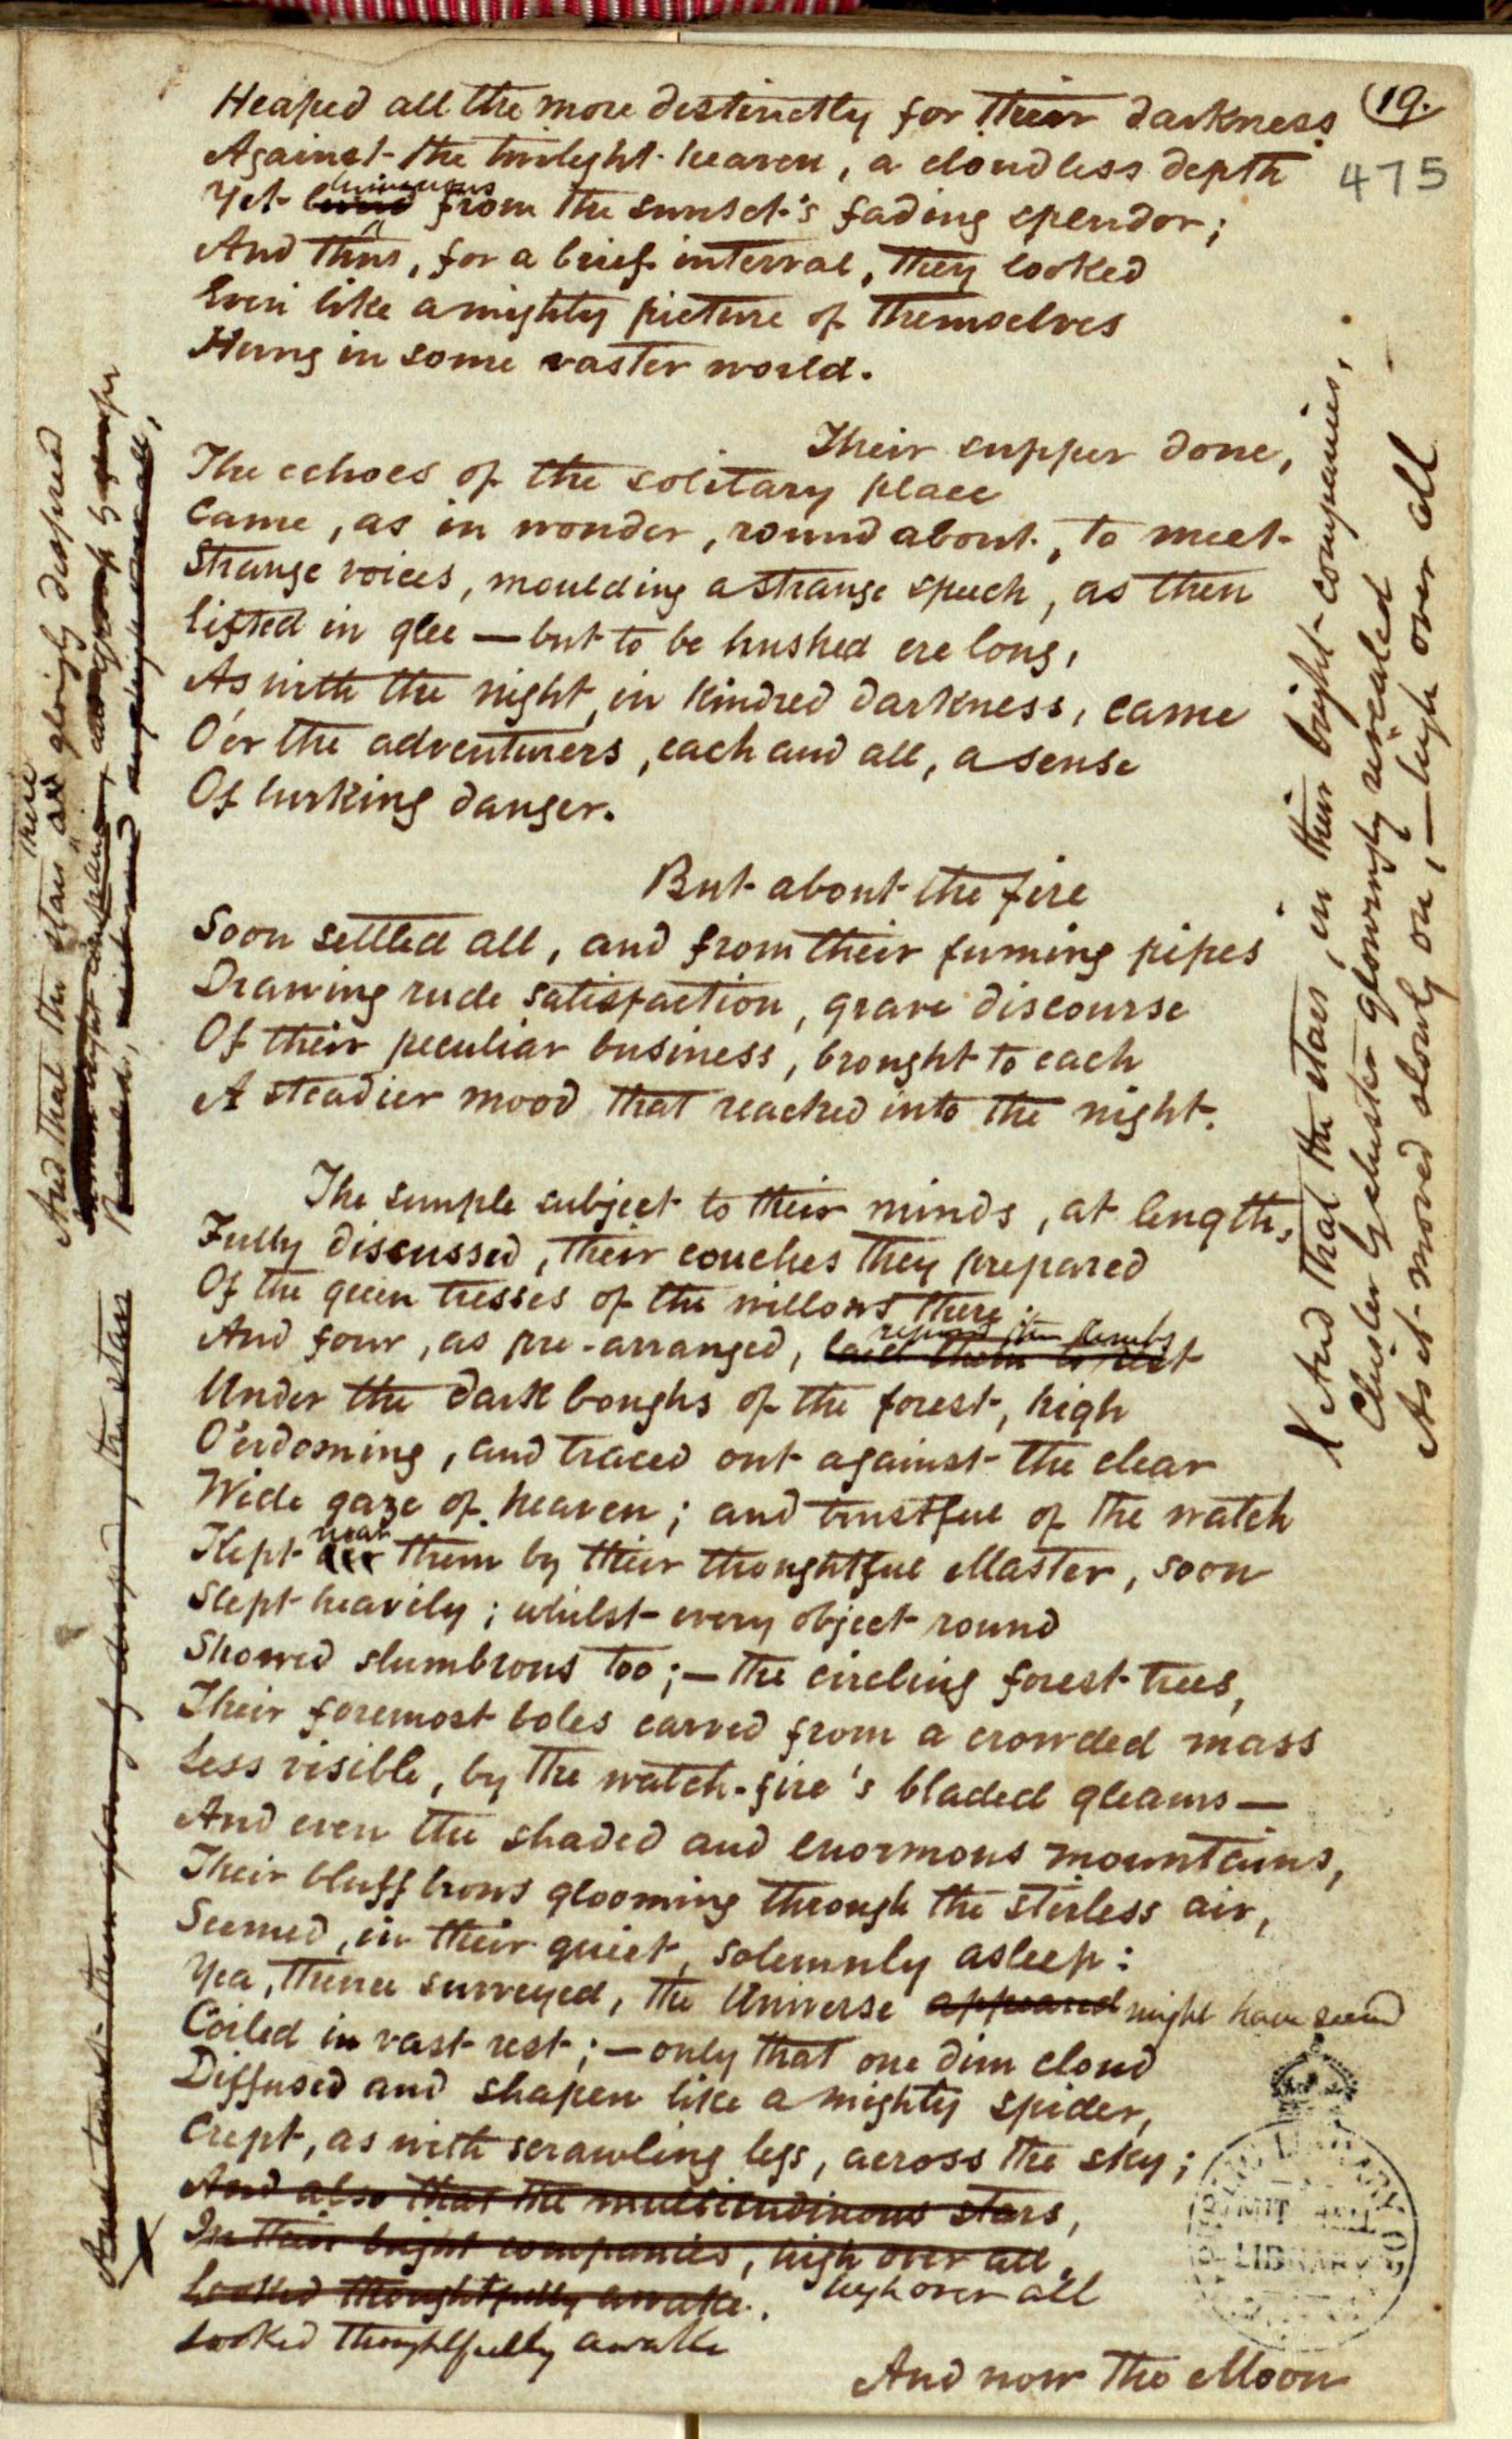 (19.
475
Heaped all the more distinctly for their darkness
Against the twilight heaven, a cloudless depth
luminous
Yet from the sunset's fading splendor;
And thus, for a brief interval, they looked
Even like a mighty picture of themselves
Hung in some vaster world.
Their supper done,
The echoes of the solitary place
Came, as in wonder, round about, to meet
Strange voices, moulding a strange speech, as then
Lifted in glee — but to be hushed ere long,
As with the night, in kindred darkness, came
O'er the adventurers, each and all, a sense
Of lurking danger.
But about the fire
Soon settled all, and from their fuming pipes
Drawing rude satisfaction, grave discourse
Of their peculiar business, brought to each
A steadier mood that reached into the night.
The simple subject to their minds, at length,
Fully discussed, their couches they prepared
Of the green tresses of the willows there;
reposed their limbs
And four, as pre-arranged, laid them to rest
Under the dark boughs of the forest, high
O'erdoming, and traced out against the clear
Wide gaze of heaven; and trustful of the watch
near
Kept them by their thoughtful Master, soon
Slept heavily; whilst every object round
Showed slumbrous too; — the circling forest trees,
Their foremost boles carved from a crowded mass
Less visible, by the watch-fire's bladed gleams —
And even the shaded and enormous mountains,
Their bluff brows glooming through the stirless air,
Seemed, in their quiet, solemnly asleep:
Yea, thence surveyed, the Universe appeared might have seemed
Coiled in vast rest; — only that one dim cloud
Diffused and shapen like a mighty spider,
Crept, as with scrawling legs, across the sky;
And also that the multitudinous stars,
In their bright companies, high over all,
Looked thoughtfully awake. high over all
Looked thoughtfully awake
And now the Moon
X And that the stars, in their bright companies,
Cluster by cluster glowingly revealed
As it moved slowly on, — high over all
there
And that the stars glowingly
X
the stars
PUBLIC LIBRARY OF
MITCHELL
LIBRARY